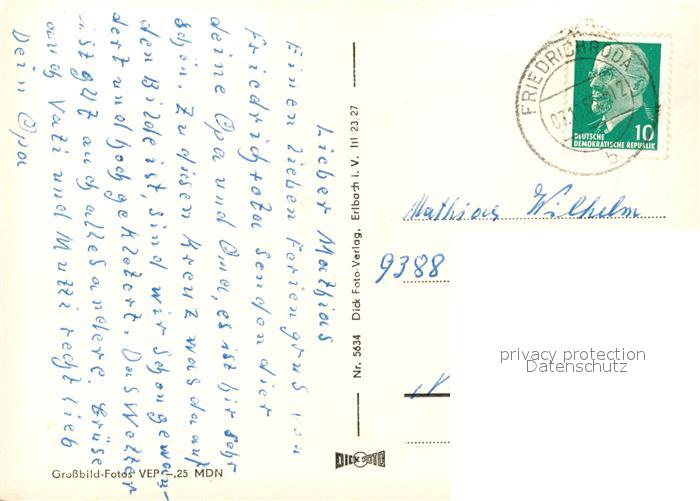 Lieber Mathias
Einen lieben Feriengrus von
Friedrichroda senden dier
deine Opa und Oma, es ist hir sehr
schön. Zu diesen Kreuz was da auf
den Bilde ist, sind wir schon gewan-
dert und hoch geklettert. Das Wetter
ist gut auch alles andere. Grüse
auch Vati und Mutti recht lieb
Dein Opa
Großbild-Fotos VEP —,25 MDN
Nr. 5634 Dick Foto-Verlag, Erlbach i. V. III 23 27
DICK FOTO
FRIEDRICHRODA
b
10
DEUTSCHE
DEMOKRATISCHE REPUBLIK
Mathias Wilhelm
9388
privacy protection
Datenschutz